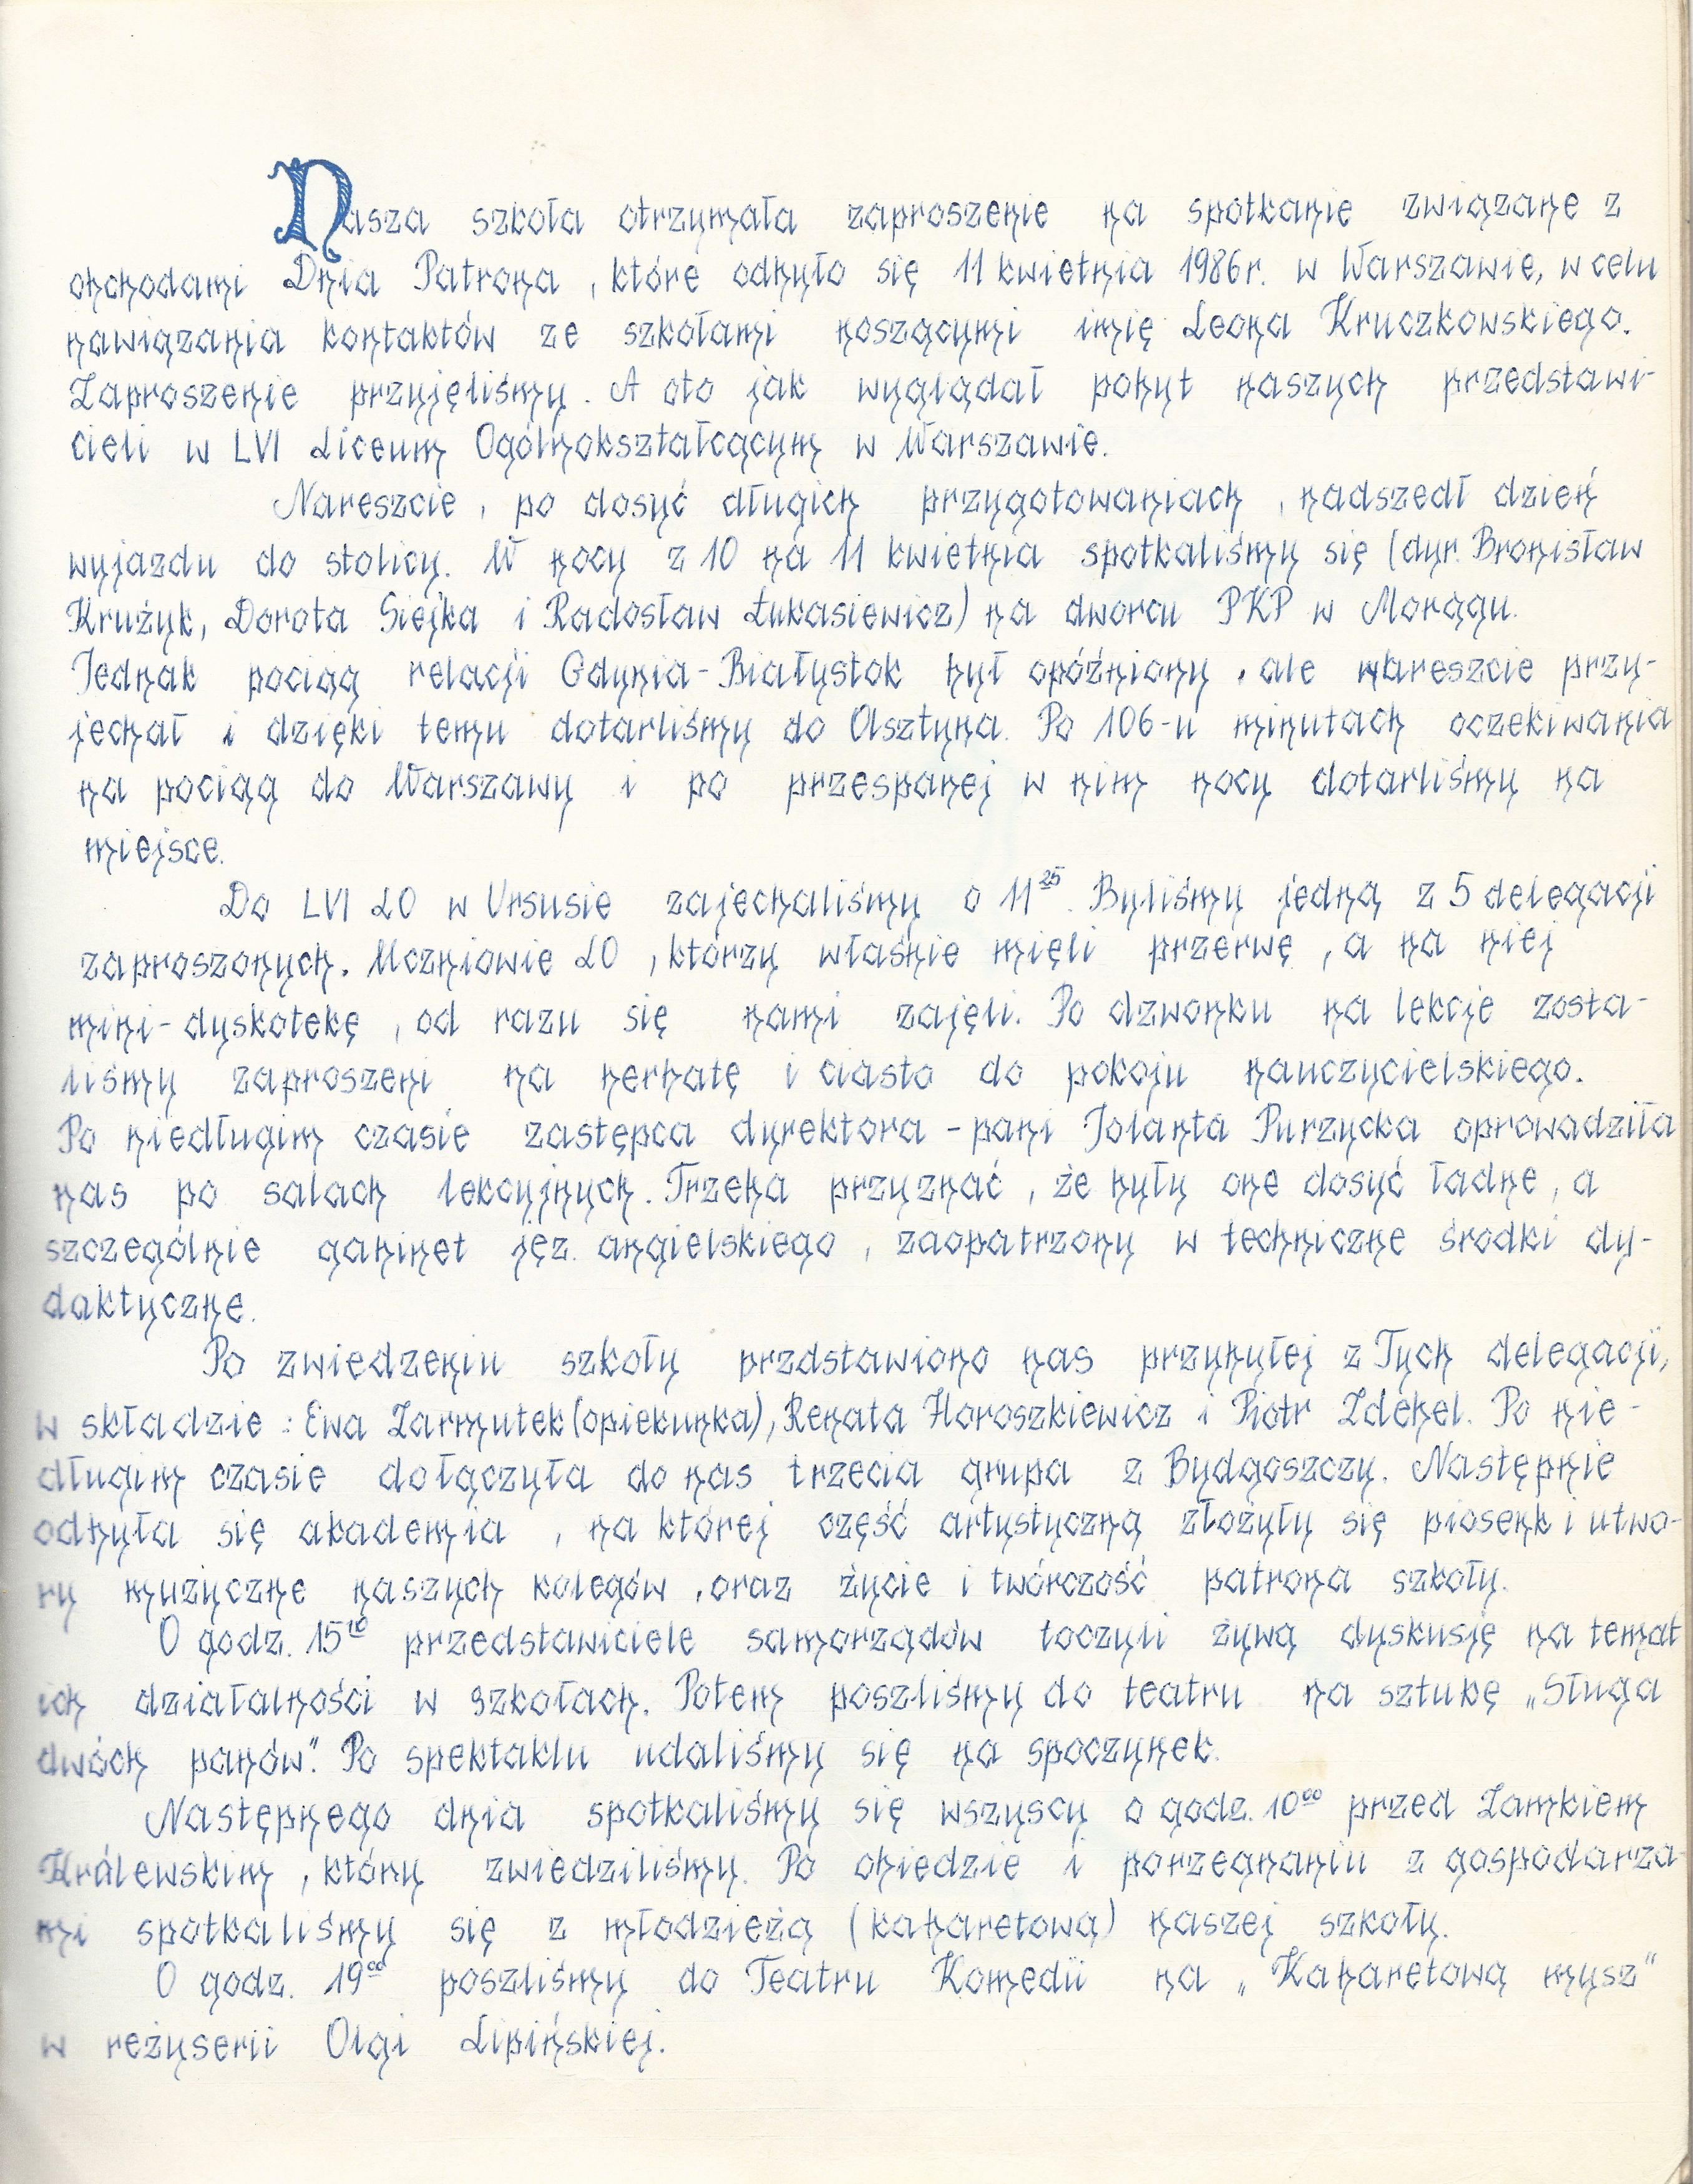 Nasza szkoła otrzymała zaproszenie na spotkanie związane z
obchodami Dnia Patrona, które odbyło się 11 kwietnia 1986r. w Warszawie, w celu
nawiązania kontaktów ze szkołami noszącymi imię Leona Kruczkowskiego.
Zaproszenie przyjęliśmy. A oto jak wyglądał pobyt naszych przedstawi-
cieli w LVI Liceum Ogólnokształcącym w Warszawie.
Nareszcie, po dosyć długich przygotowaniach, nadszedł dzień
wyjazdu do stolicy. W nocy z 10 na 11 kwietnia spotkaliśmy się (dyr. Bronisław
Krużyk, Dorota Siejka i Radosław Łukasiewicz) na dworcu PKP w Morągu.
Jednak pociąg relacji Gdynia-Białystok był opóźniony, ale nareszcie przy-
jechał i dzięki temu dotarliśmy do Olsztyna. Po 106-u minutach oczekiwania
na pociąg do Warszawy i po przespanej w nim nocy dotarliśmy na
miejsce.
Do LVI LO w Ursusie zajechaliśmy o 11²⁵. Byliśmy jedną z 5 delegacji
zaproszonych. Uczniowie LO, którzy właśnie mięli przerwę, a na niej
mini-dyskotekę, od razu się nami zajęli. Po dzwonku na lekcje zosta-
liśmy zaproszeni na herbatę i ciasto do pokoju nauczycielskiego.
Po niedługim czasie zastępca dyrektora - pani Jolanta Purzycka oprowadziła
nas po salach lekcyjnych. Trzeba przyznać, że były one dosyć ładne, a
szczególnie gabinet jęz. angielskiego, zaopatrzony w techniczne środki dy-
daktyczne.
Po zwiedzeniu szkoły przdstawiono nas przybyłej z Tych delegacji,
w składzie: Ewa Zarmutek (opiekunka), Renata Horoszkiewicz i Piotr Zdebel. Po nie-
długim czasie dołączyła do nas trzecia grupa z Bydgoszczy. Następnie
odbyła się akademia, na której część artystyczną złożyły się piosenki utwo-
ry muzyczne naszych kolegów, oraz życie i twórczość patrona szkoły.
O godz. 15¹⁰ przedstawiciele samorządów toczyli żywą dyskusję na temat
ich działalności w szkołach. Potem poszliśmy do teatru na sztukę „Sługa
dwóch panów". Po spektaklu udaliśmy się na spoczynek.
Następnego dnia spotkaliśmy się wszyscy o godz. 10⁰⁰ przed Zamkiem
Królewskim, który zwiedziliśmy. Po obiedzie i porzegnaniu z gospodarza-
mi spotkaliśmy się z młodzieżą (kabaretową) naszej szkoły.
O godz. 19⁰⁰ poszliśmy do Teatru Komedii na „Kabaretową mysz"
w reżyserii Olgi Lipińskiej.